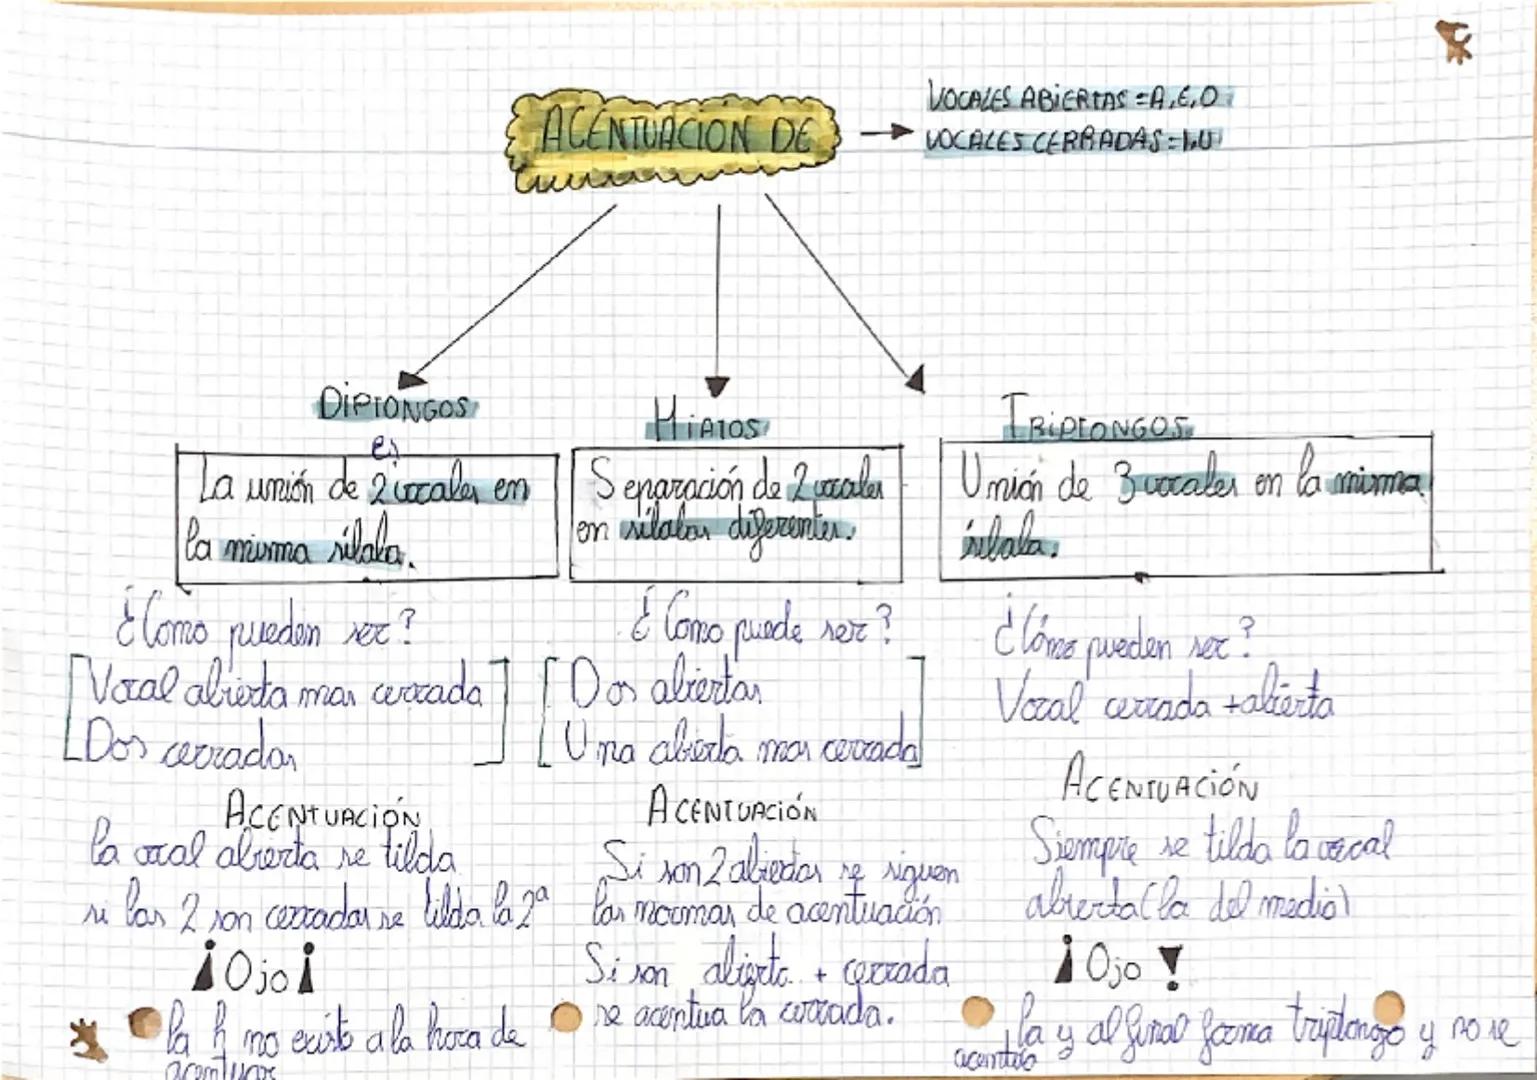 ACENTUACION DE
VOCALES ABIERTAS = A, E, O
VOCALES CERRADAS = I, U
DIPTONGOS
es
La unión de 2 vocales en
la misma sílaba.
¿Como pueden ser?
Vocal abierta mas cerrada
Dos cerradas
ACENTUACIÓN
la vocal abierta se tilda
si las 2 son cerradas se tilda la 2ª
¡Ojo¡
la h no existe a la hora de
acentuar
HIATOS
Separación de 2 vocales
en sílabas diferentes.
¿Como puede ser?
Dos abiertas
Una abierta mas cerrada
ACENTUACIÓN
Si son 2 abiertas se siguen
las normas de acentuación
Si son abierta + cerrada
se acentua la cerrada.
TRIPTONGOS
Unión de 3 vocales en la misma
sílaba.
¿Cómo pueden ser?
Vocal cerrada + abierta
ACENTUACIÓN
Siempre se tilda la vocal
abierta (la del medio)
¡Ojo!
la y al final forma triptongo y no se